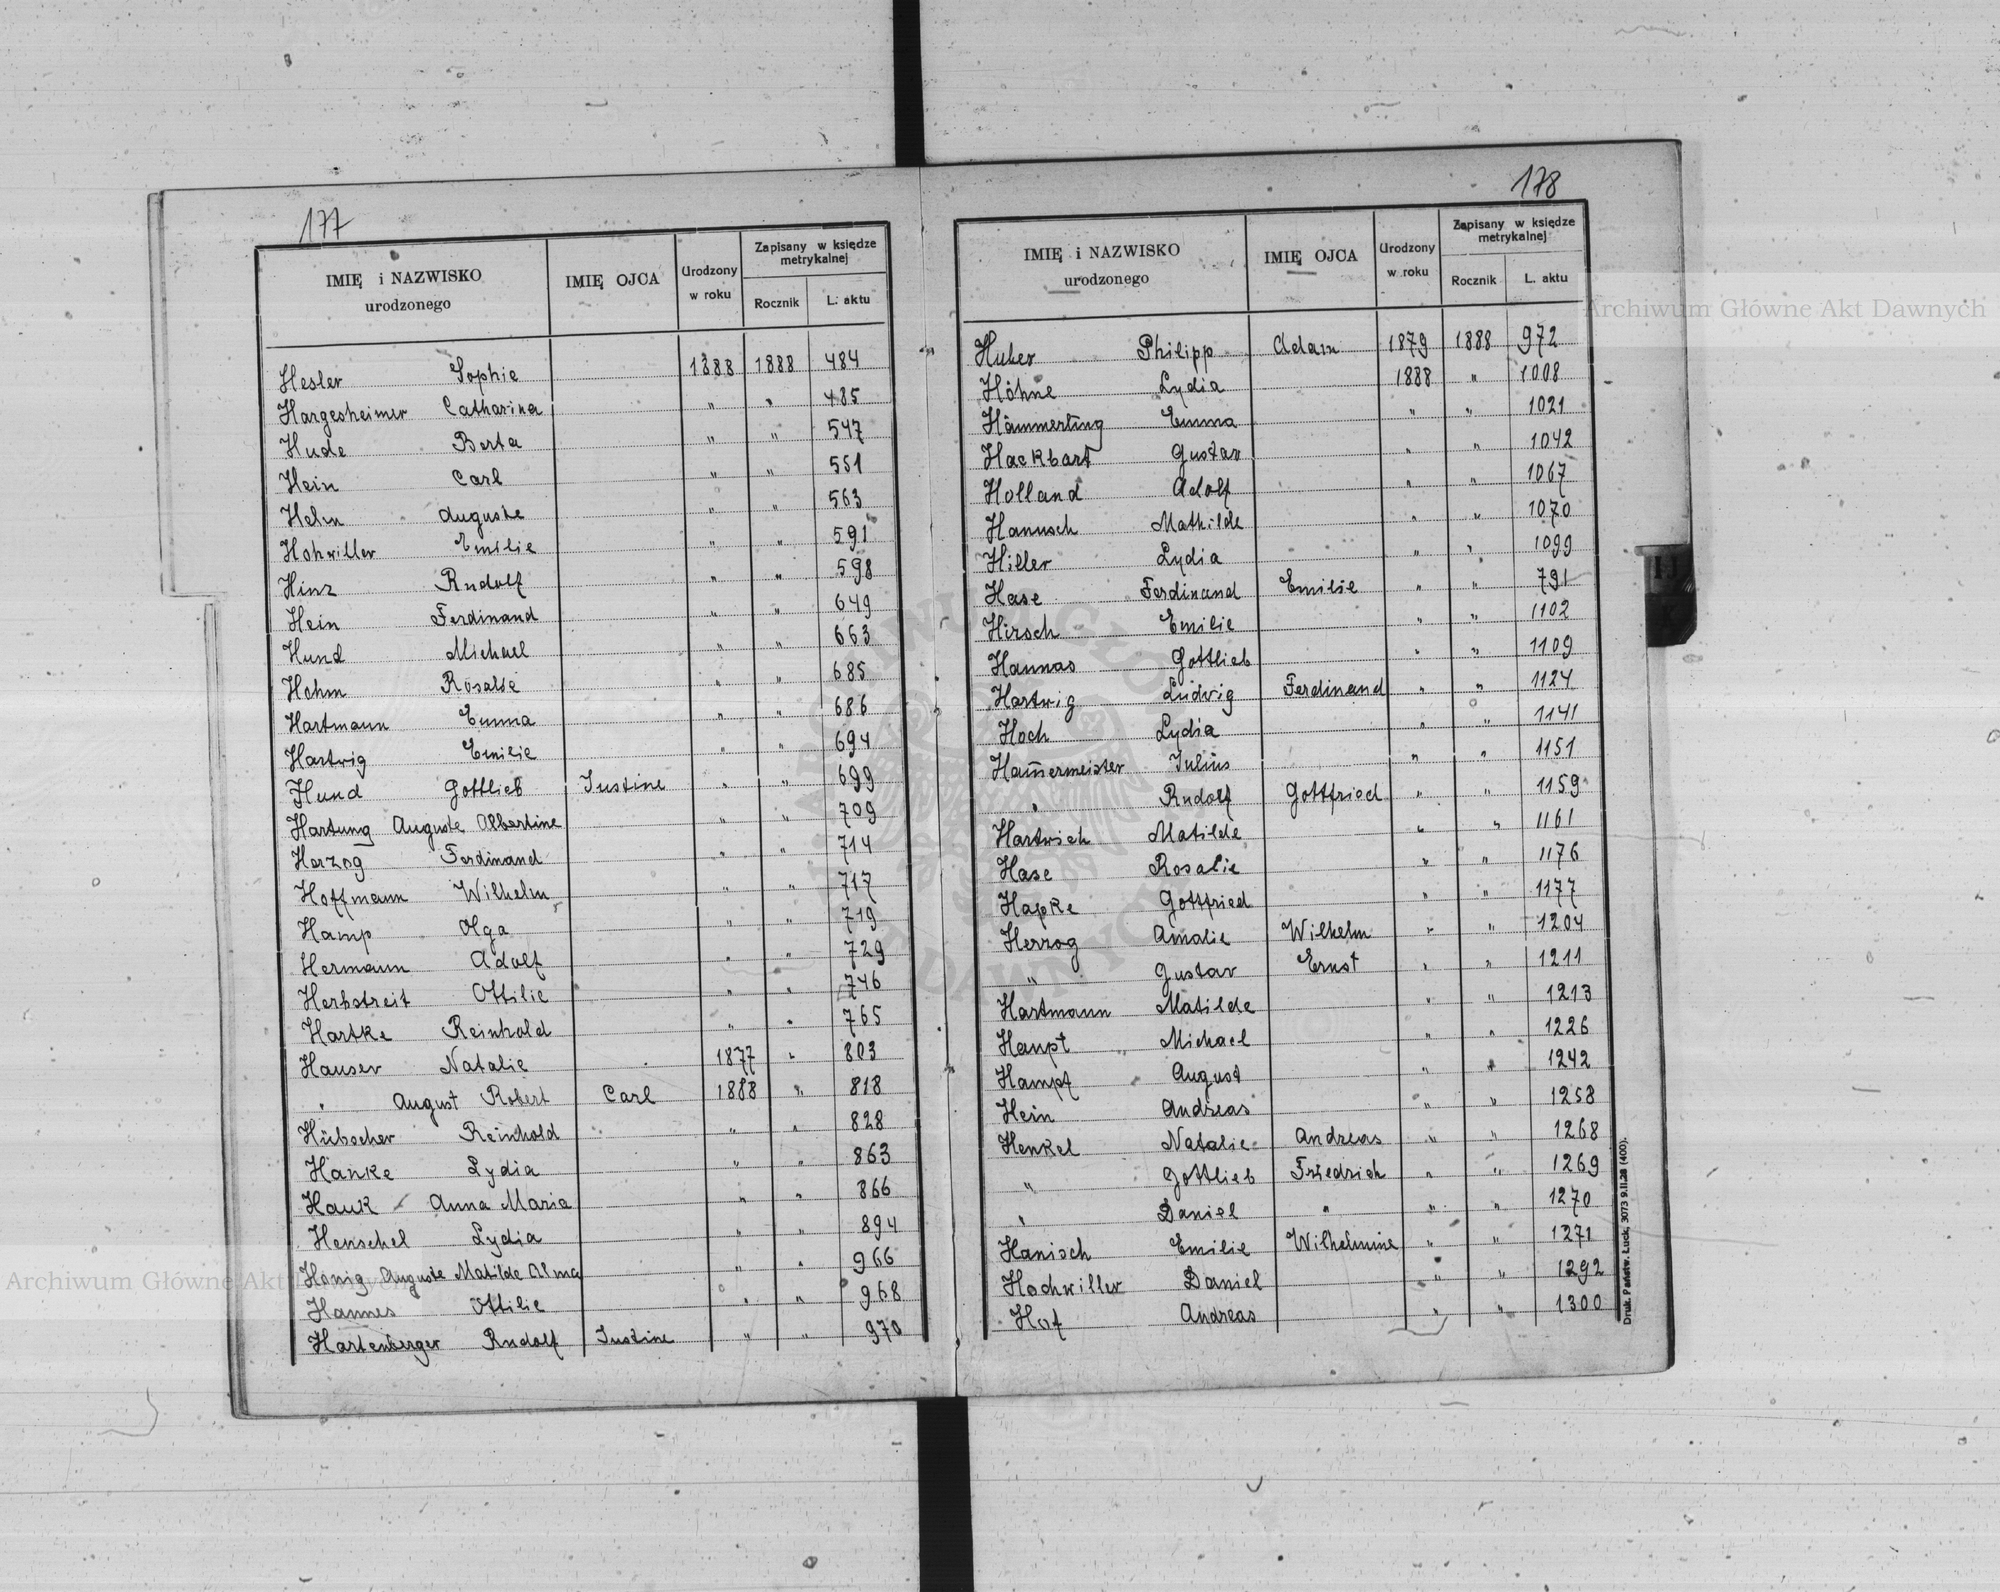 177
IMIĘ i NAZWISKO urodzonego IMIĘ OJCA Urodzony w roku Zapisany w księdze metrykalnej Rocznik L. aktu
Hesler Sophie 1888 1888 484
Hargesheimer Catharina " " 485
Hude Berta " " 547
Hein Carl " " 551
Helm Auguste " " 563
Hohviller Emilie " " 591
Hinz Rudolf " " 598
Hein Ferdinand " " 649
Hund Michael " " 663
Hohm Rosalie " " 685
Hartmann Emma " " 686
Hartwig Emilie " " 694
Hund Gottlieb Justine " " 699
Hartung Auguste Albertine " " 709
Herzog Ferdinand " " 714
Hoffmann Wilhelm " " 717
Hamp Olga " " 719
Hermann Adolf " " 729
Herbstreit Ottilie " " 746
Hartke Reinhold " " 765
Hauser Natalie 1877 " 803
" August Robert Carl 1888 " 818
Hübscher Reinhold " " 828
Hanke Lydia " " 863
Hauk Anna Maria " " 866
Henschel Lydia " " 894
Hönig Auguste Matilde Alma " " 966
Hannes Ottilie " " 968
Hartenberger Rudolf Justine " " 970
178
IMIĘ i NAZWISKO urodzonego IMIĘ OJCA Urodzony w roku Zapisany w księdze metrykalnej Rocznik L. aktu
Huber Philipp Adam 1879 1888 972
Höhne Lydia 1888 " 1008
Hämmerling Emma " " 1021
Hackbart Gustav " " 1042
Holland Adolf " " 1067
Hanusch Mathilde " " 1070
Hiller Lydia " " 1099
Hase Ferdinand Emilie " " 791
Hirsch Emilie " " 1102
Hannas Gottlieb " " 1109
Hartwig Ludwig Ferdinand " " 1124
Hoch Lydia " " 1141
Ham̄ermeister Julius " " 1151
" Rudolf Gottfried " " 1159
Hartwich Matilde " " 1161
Hase Rosalie " " 1176
Hapke Gottfried " " 1177
Herzog Amalie Wilhelm " " 1204
" Gustav Ernst " " 1211
Hartmann Matilde " " 1213
Haupt Michael " " 1226
Hampf August " " 1242
Hein Andreas " " 1258
Henkel Natalie Andreas " " 1268
" Gottlieb Friedrich " " 1269
" Daniel " " " 1270
Hanisch Emilie Wilhelmine " " 1271
Hochviller Daniel " " 1292
Hof Andreas " " 1300
Druk. Państw. Łuck, 3073 9.II.28 (400).
Archiwum Główne Akt Dawnych
Archiwum Główne Akt Dawnych